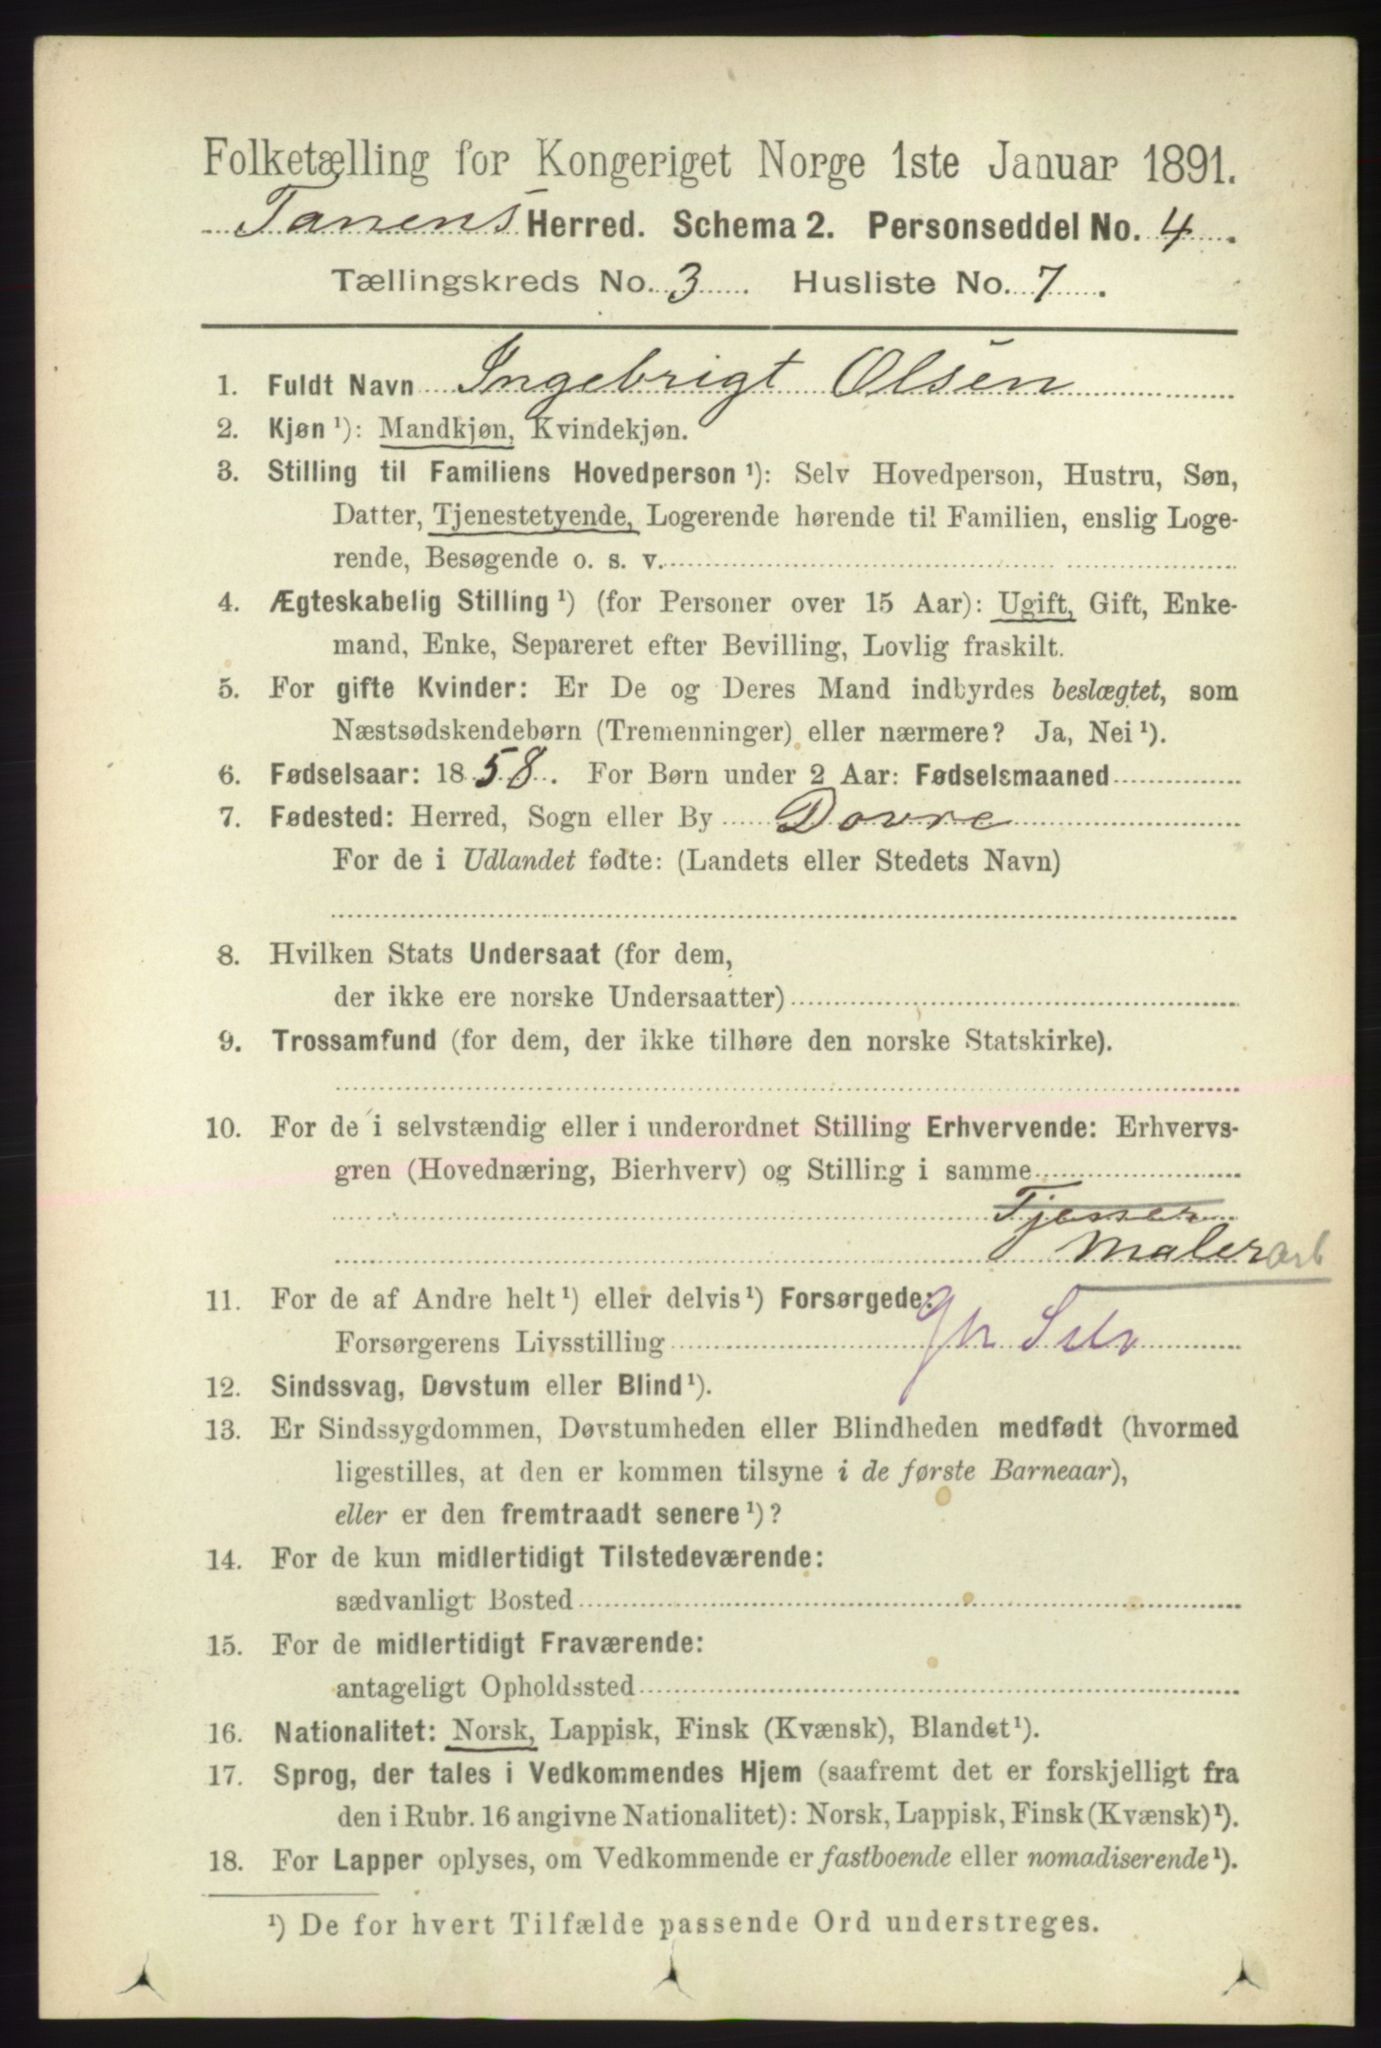 Folketælling for Kongeriget Norge 1ste Januar 1891.
Tanens Herred. Schema 2. Personseddel No. 4.
Tællingskreds No. 3. Husliste No. 7.
1. Fuldt Navn Ingebrigt Olsen
2. Kjøn ¹): Mandkjøn, Kvindekjøn.
3. Stilling til Familiens Hovedperson ¹): Selv Hovedperson, Hustru, Søn,
Datter, Tjenestetyende, Logerende hørende til Familien, enslig Loge-
rende, Besøgende o. s. v.
4. Ægteskabelig Stilling ¹) (for Personer over 15 Aar): Ugift, Gift, Enke-
mand, Enke, Separeret efter Bevilling, Lovlig fraskilt.
5. For gifte Kvinder: Er De og Deres Mand indbyrdes beslægtet, som
Næstsødskendebørn (Tremenninger) eller nærmere? Ja, Nei ¹).
6. Fødselsaar: 1858. For Børn under 2 Aar: Fødselsmaaned
7. Fødested: Herred, Sogn eller By Dovre
For de i Udlandet fødte: (Landets eller Stedets Navn)
8. Hvilken Stats Undersaat (for dem,
der ikke ere norske Undersaatter)
9. Trossamfund (for dem, der ikke tilhøre den norske Statskirke).
10. For de i selvstændig eller i underordnet Stilling Erhvervende: Erhvervs-
gren (Hovednæring, Bierhverv) og Stilling i samme
Maler arb
11. For de af Andre helt ¹) eller delvis ¹) Forsørgede:
Forsørgerens Livsstilling
12. Sindssvag, Døvstum eller Blind ¹).
13. Er Sindssygdommen, Døvstumheden eller Blindheden medfødt (hvormed
ligestilles, at den er kommen tilsyne i de første Barneaar),
eller er den fremtraadt senere ¹)?
14. For de kun midlertidigt Tilstedeværende:
sædvanligt Bosted
15. For de midlertidigt Fraværende:
antageligt Opholdssted
16. Nationalitet: Norsk, Lappisk, Finsk (Kvænsk), Blandet ¹).
17. Sprog, der tales i Vedkommendes Hjem (saafremt det er forskjelligt fra
den i Rubr. 16 angivne Nationalitet): Norsk, Lappisk, Finsk (Kvænsk) ¹).
18. For Lapper oplyses, om Vedkommende er fastboende eller nomadiserende ¹).
¹) De for hvert Tilfælde passende Ord understreges.